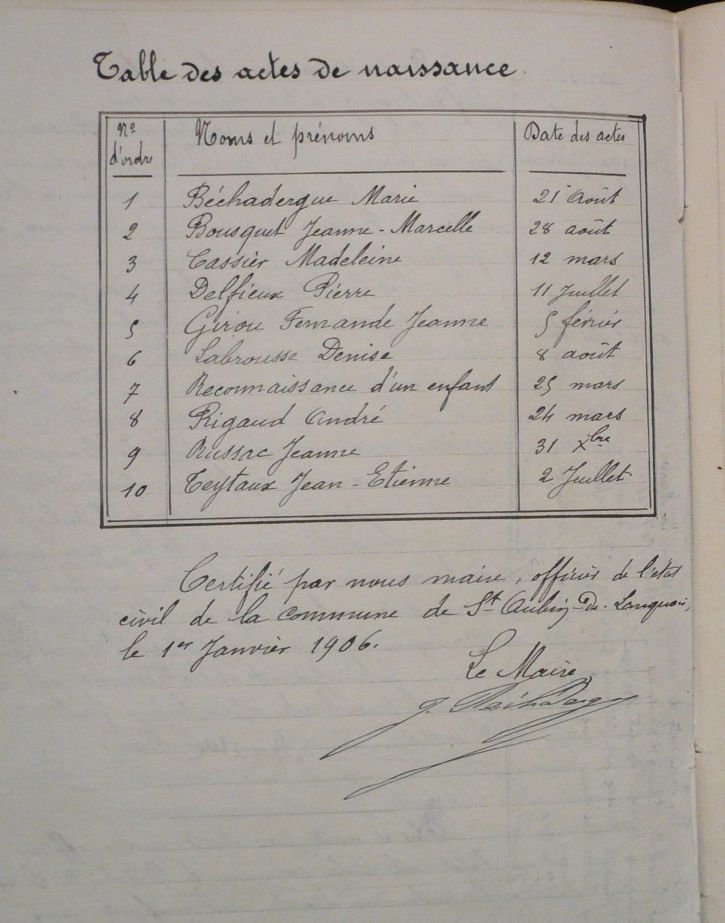 Table des actes de naissance.
Nº d'ordre Noms et prénoms Date des actes
1 Béchadergue Marie 21 Août
2 Bousquet Jeanne-Marcelle 28 août
3 Cassier Madeleine 12 mars
4 Delfieux Pierre 11 Juillet
5 Girou Fernande Jeanne 5 février
6 Labrousse Denise 8 août
7 Reconnaissance d'un enfant 25 mars
8 Rigaud André 24 mars
9 Russac Jeanne 31 Xbre
10 Teytaux Jean-Etienne 2 Juillet
Certifié par nous maire, officier de l'état
civil de la commune de St Aubin-de-Lanquais,
le 1er Janvier 1906.
Le Maire